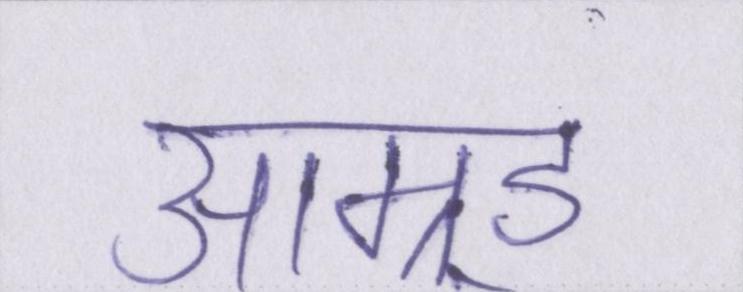 आमूड